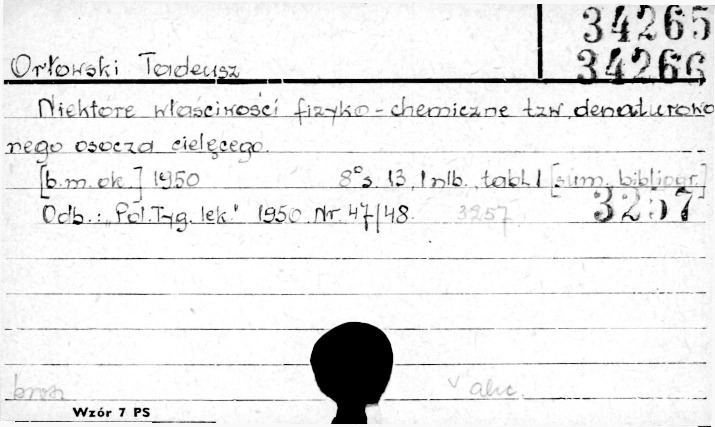 34265
Orłowski Tadeusz 34266
Niektóre właściwości fizyko-chemiczne tzw. denaturowa
nego osocza cielęcego.
[b.m.ok.] 1950 8° s. 13, 1 nlb., tabl. 1 [sum. bibliogr.]
Odb.: „Pol. Tyg. lek." 1950. Nr. 47/48. 3257 3257
brosz
Wzór 7 PS